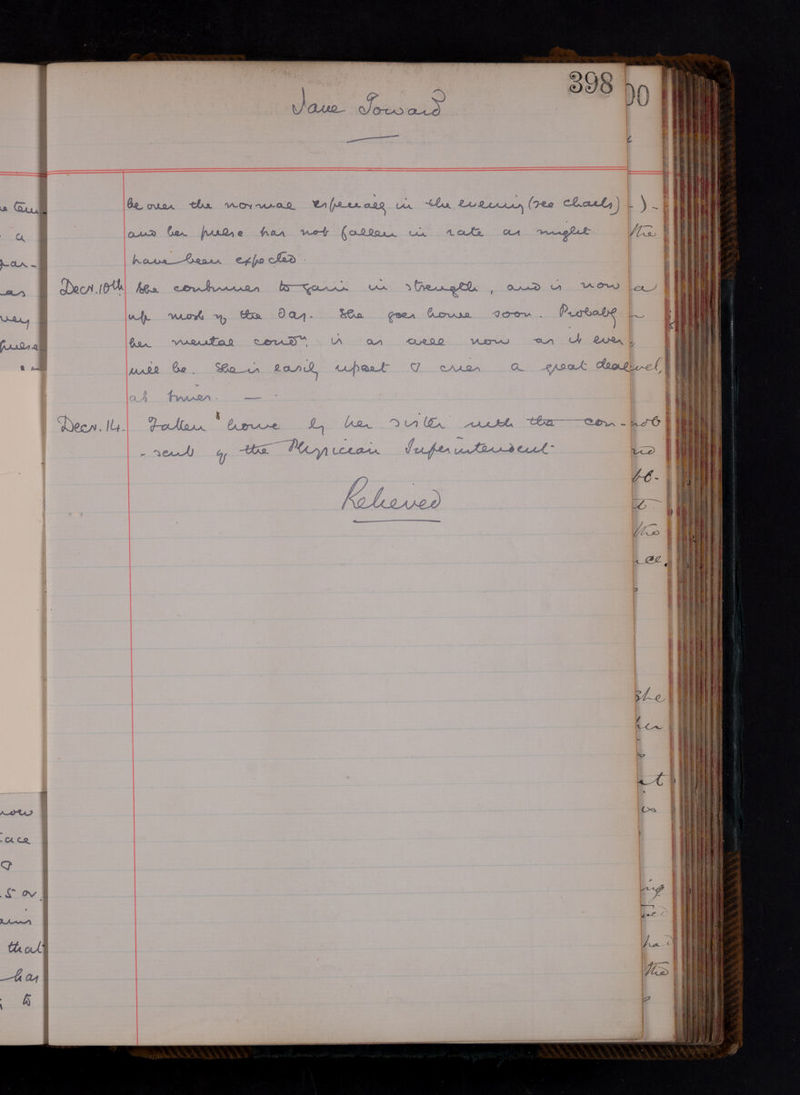 398
Jane Toward
be over the normal especially in the evening (see charts)
and her pulse has not fallen in rate as might
have been expected.
Decr. 10th She continues to gain in strength, and is now
up most of the day. She goes home soon. Probably
her mental condn. is as well now as it ever
will be. She is easily upset & cries a great deal
at times. —
Decr. 14. Taken home by her sister with the con-
- sent of the Physician Superintendent
Relieved
00
the
a
not
the
ce,
She
her
at
ing
had
the
a
very
pulse
now
face
&
that
has
to